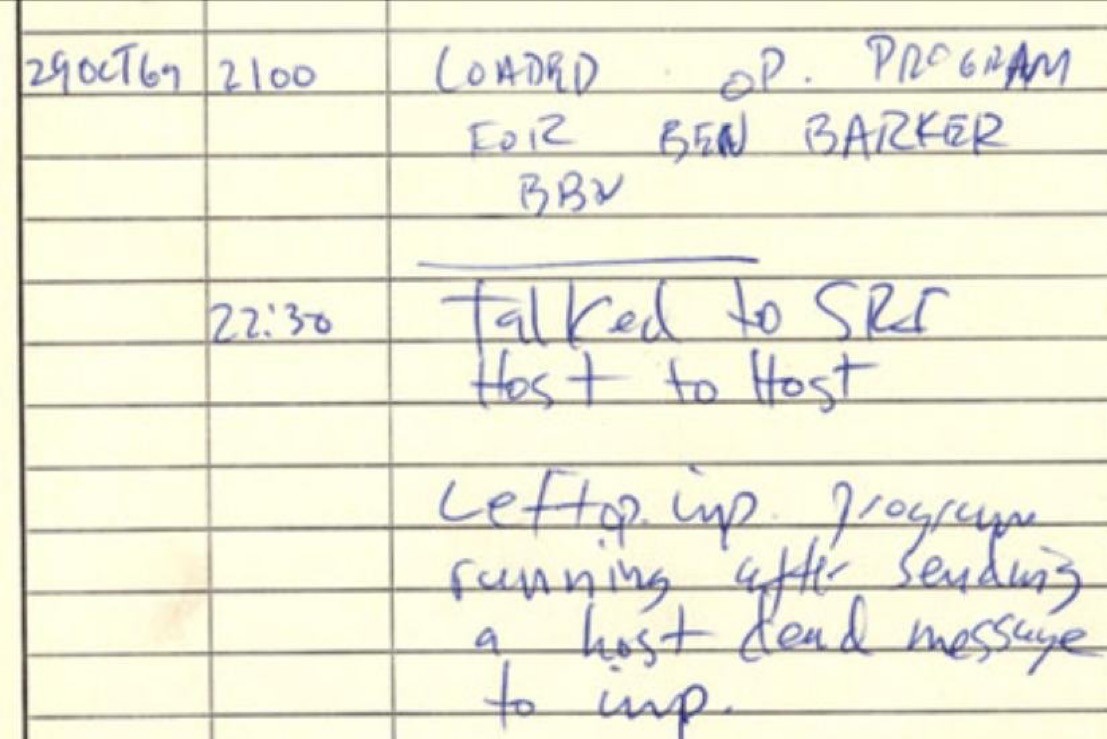 29 OCT 69 2100 LOADED OP. PROGRAM
FOR BEN BARKER
BBN
22:30 Talked to SRI
Host to Host
Left op. imp. program
running after sending
a host dead message
to imp.